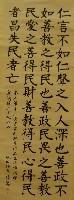 仁言不如仁聲之入人深也善政不
如善教之得民也善政民畏之善教
民愛之善政得民財善教得民心得民
者昌失民者亡